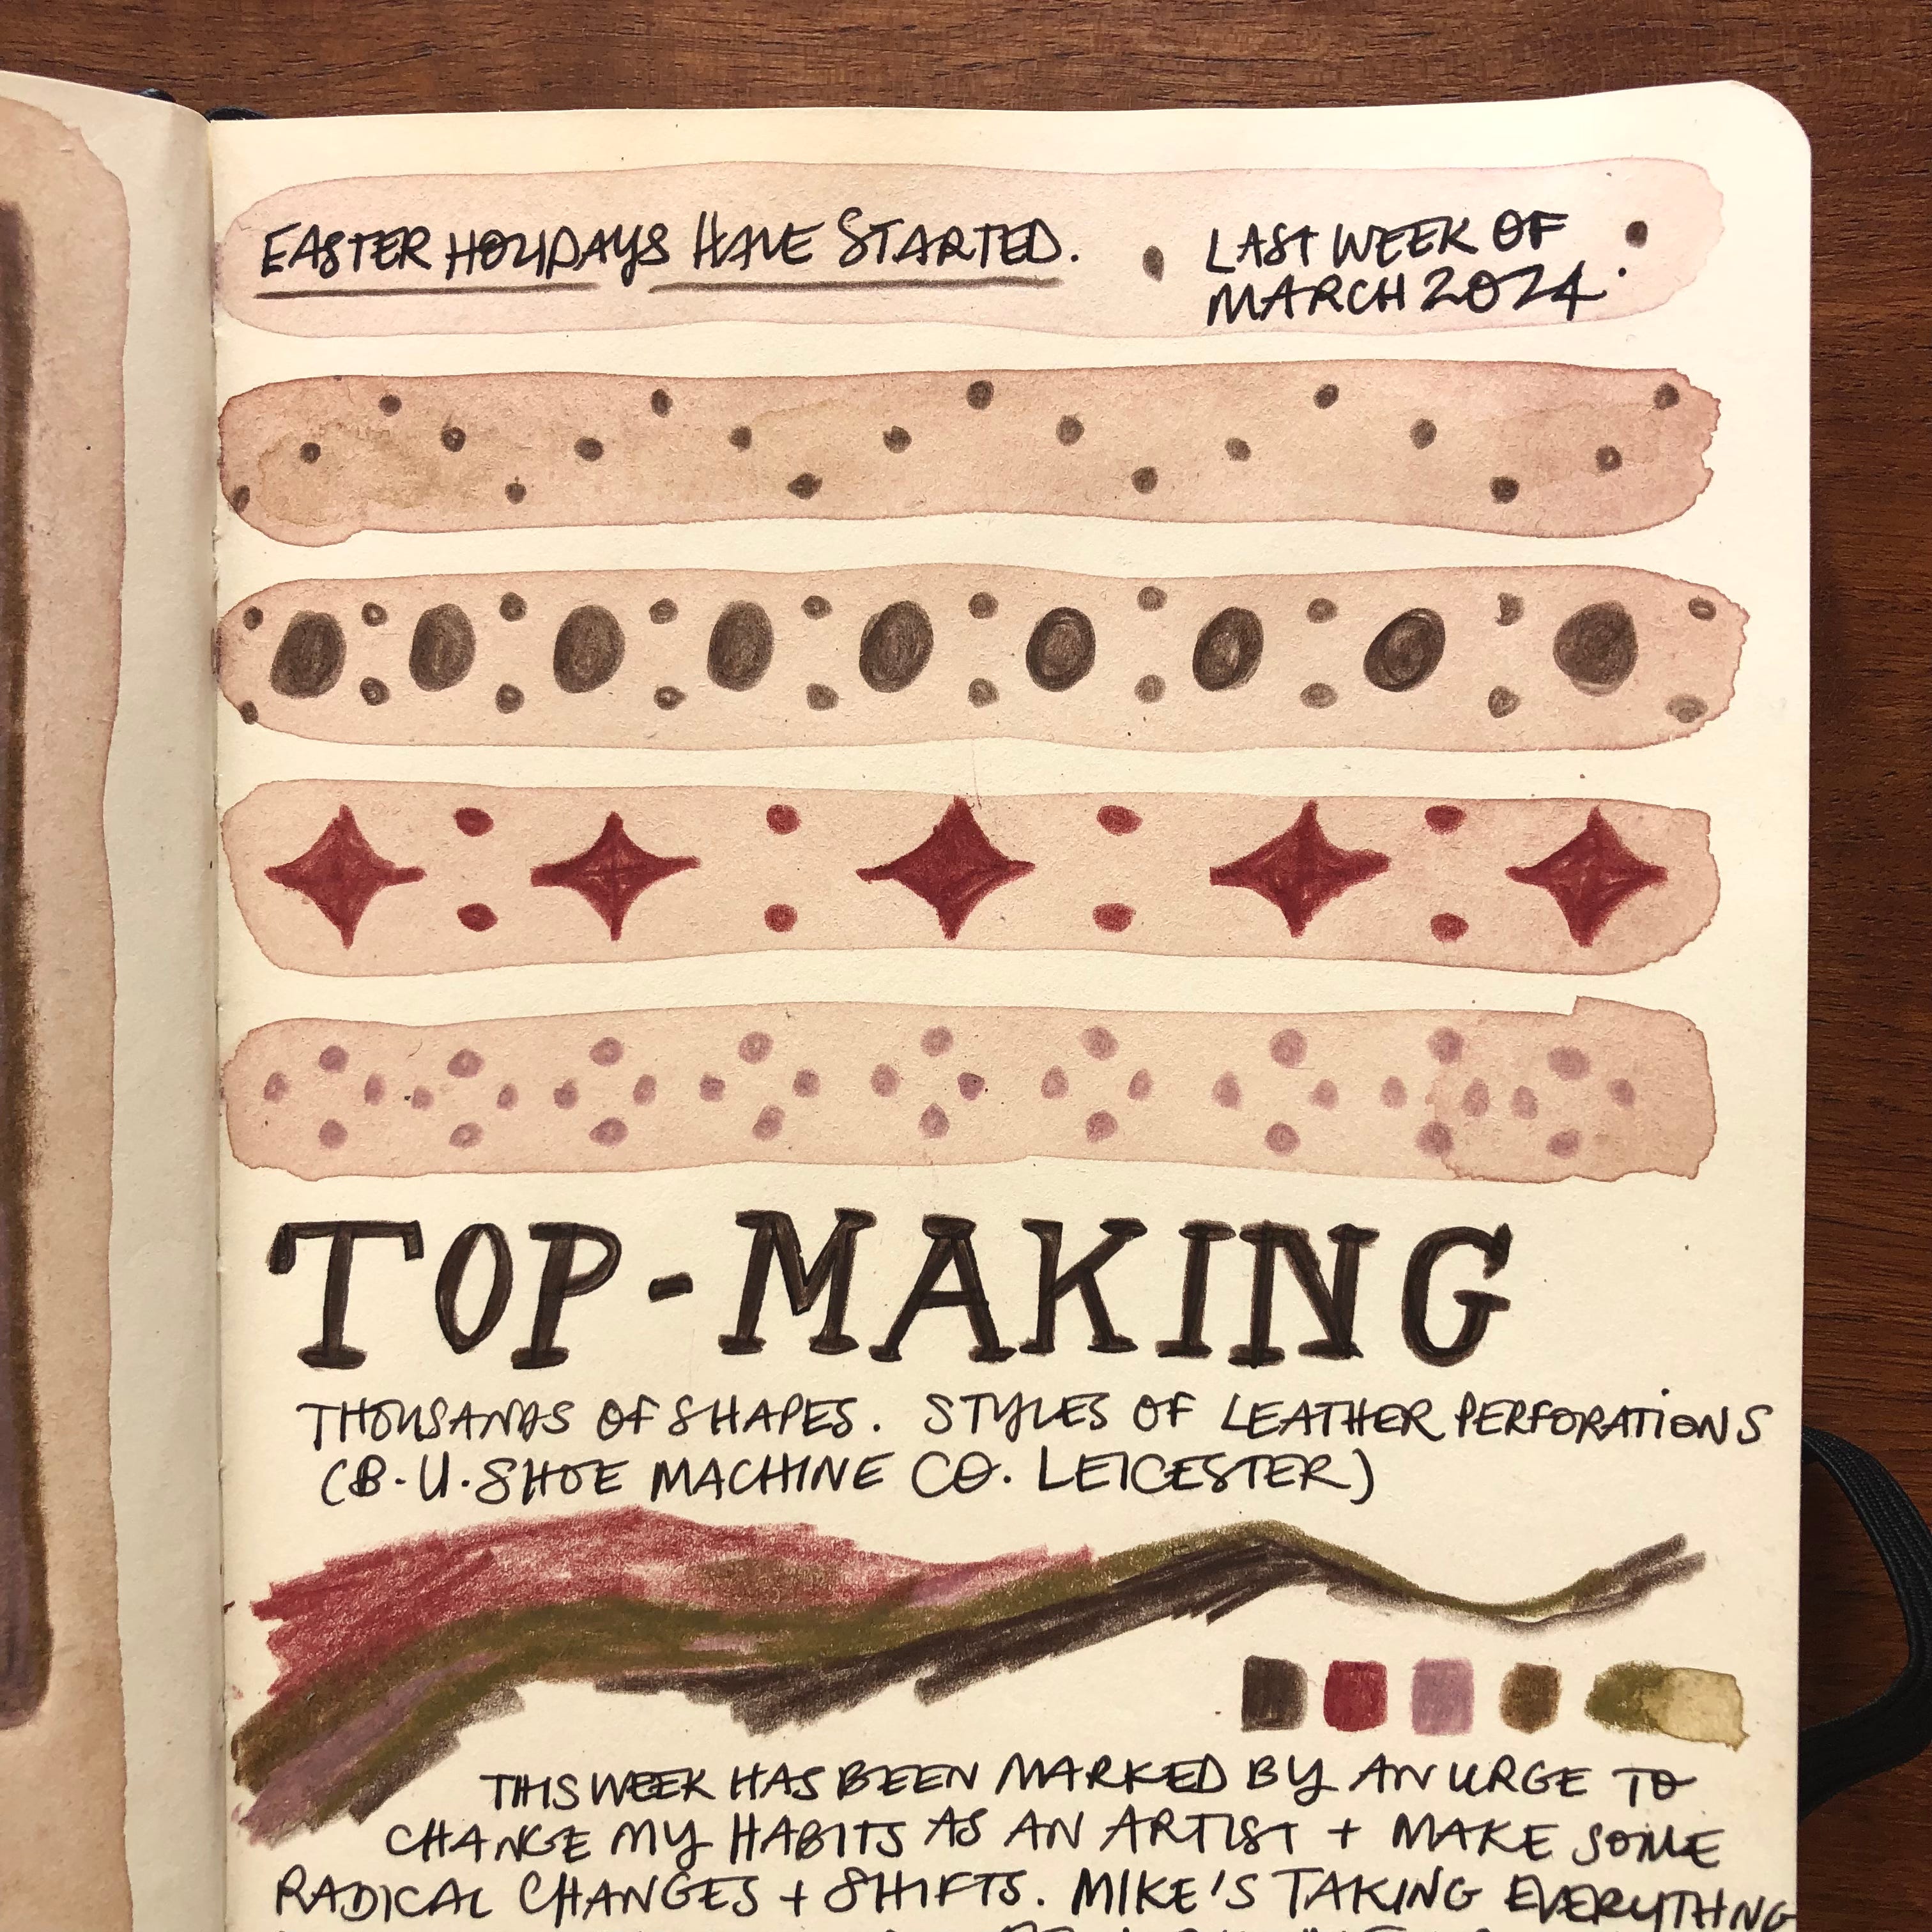 EASTER HOLIDAYS HAVE STARTED.
LAST WEEK OF
MARCH 2024.
TOP-MAKING
THOUSANDS OF SHAPES. STYLES OF LEATHER PERFORATIONS
(B.U.SHOE MACHINE CO. LEICESTER)
THIS WEEK HAS BEEN MARKED BY AN URGE TO
CHANGE MY HABITS AS AN ARTIST + MAKE SOME
RADICAL CHANGES + SHIFTS. MIKE'S TAKING EVERYTHING